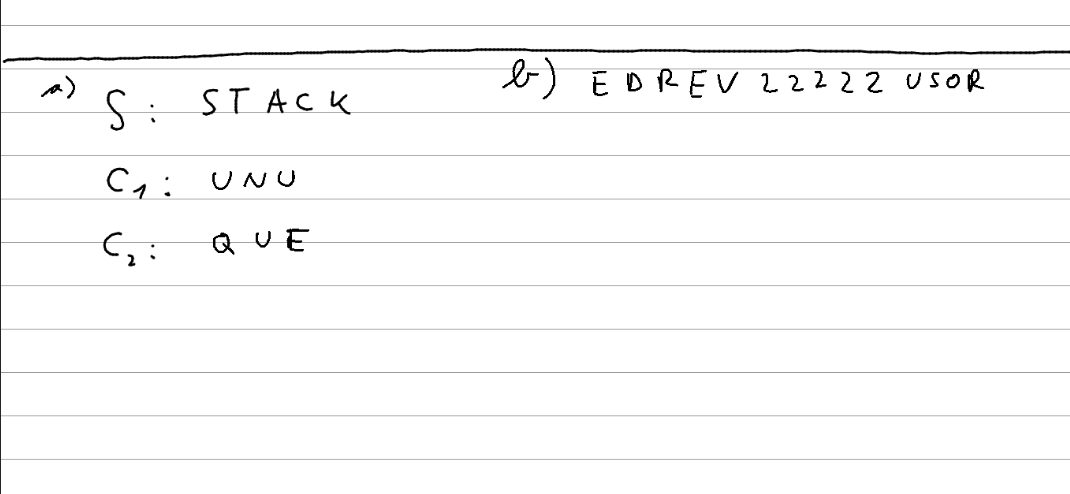 a) S: STACK
C1: UNU
C2: QUE
b) EDREV 22222 USOR